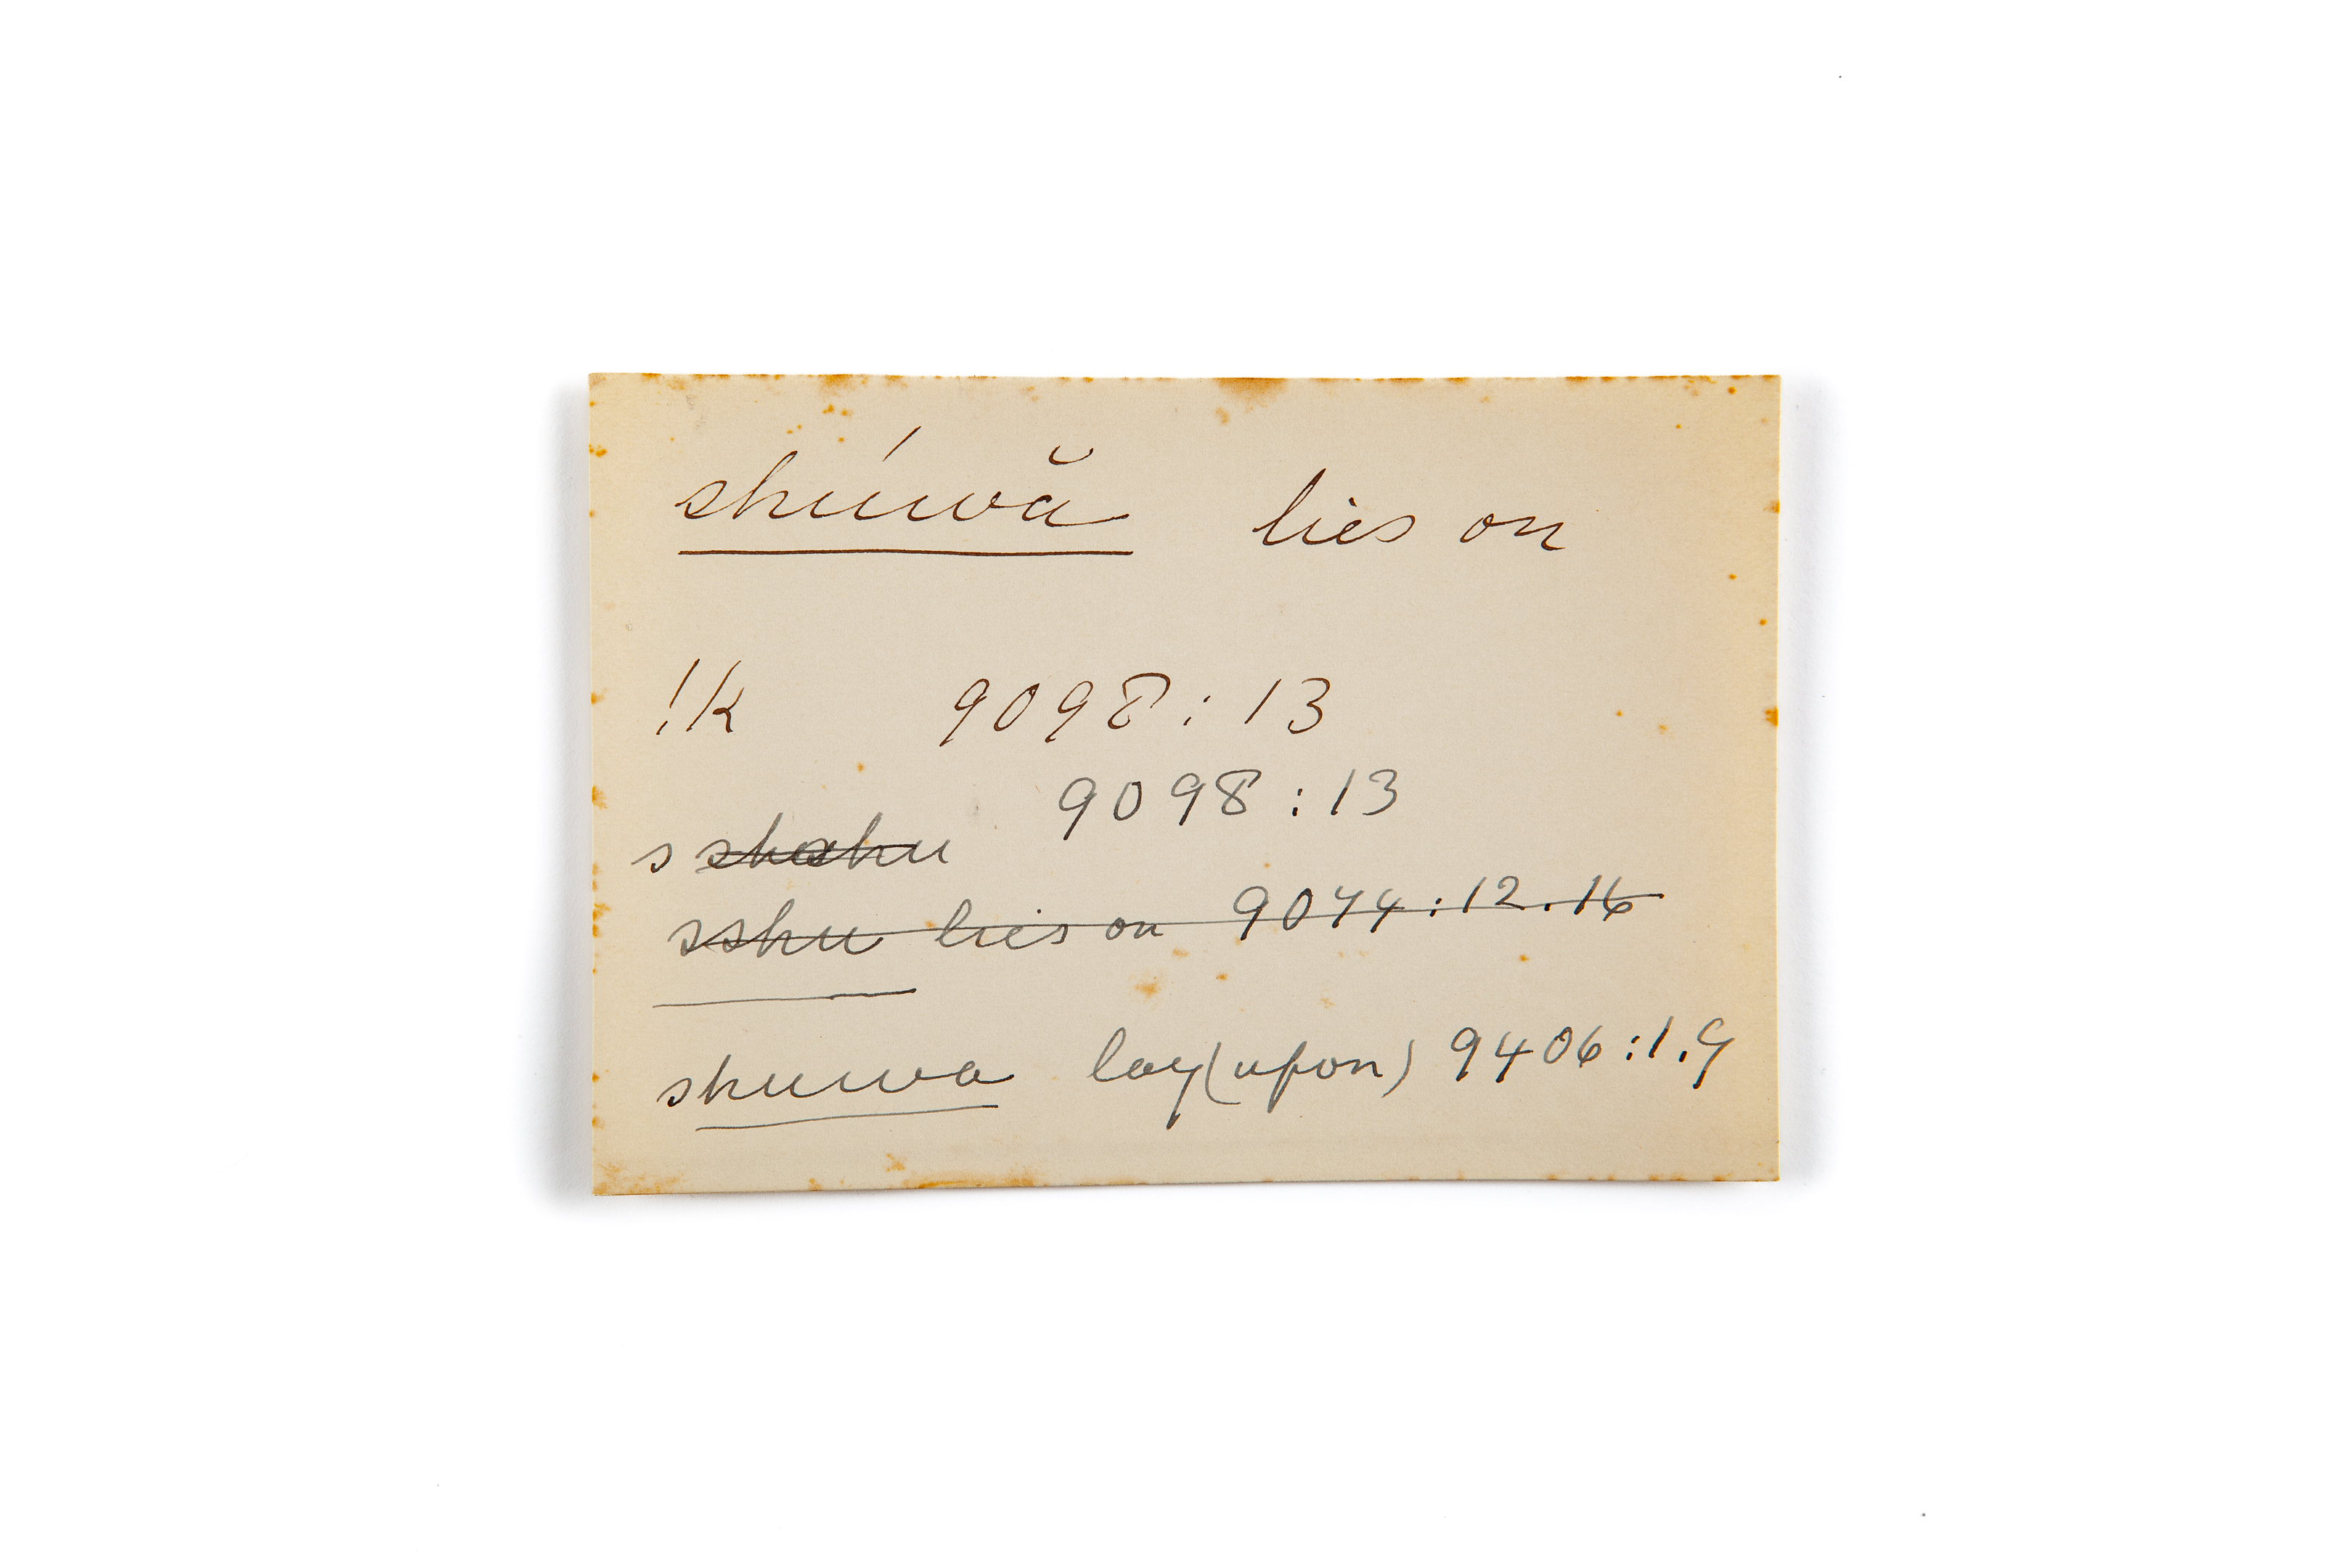 shúwă lies on
!k 9098:13
9098:13
s
sshu lies on 9074:12.16
shuwa lay (upon) 9406:1.9